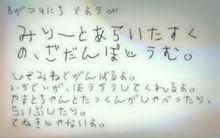 もがつ9にち どようび
みりーとあらいたすく
の、ざだんぽじうむ。
ひざみねでがんばるお。
とーびいが、ほうそうしてくれるお。
やまとくんとたっくんがしゃべったり、
らいぶしたり。
てぬきじゃないお。